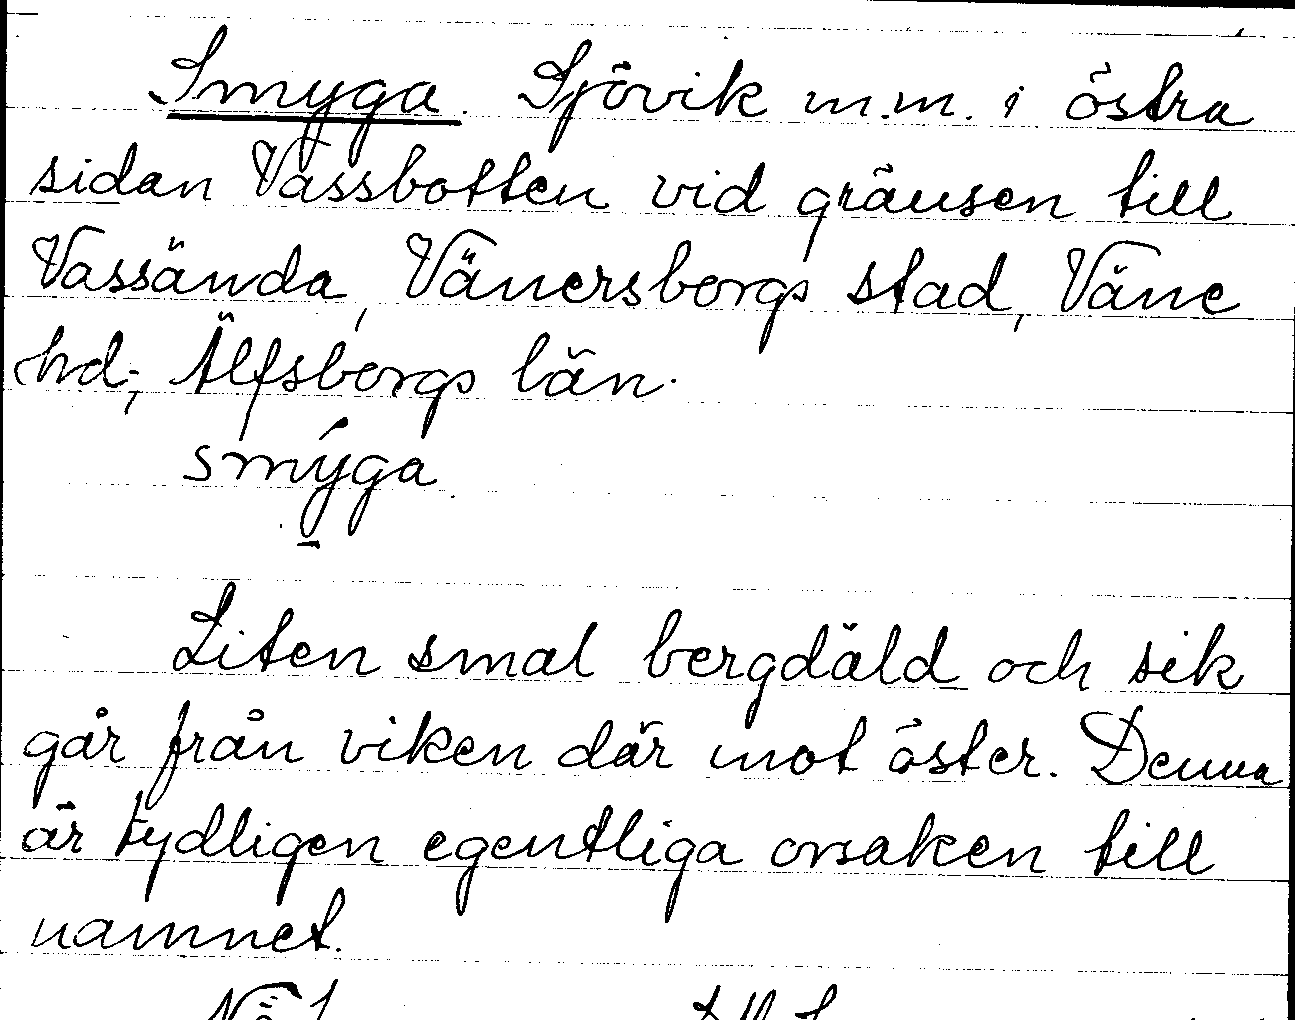 Smyga. Sjövik m.m. i östra
sidan Vassbotten vid gränsen till
Vassända, Vänersborgs stad, Väne
hd., Älfsborgs län.
smýga
Liten smal bergdäld och sik
går från viken där mot öster. Denna
är tydligen egentliga orsaken till
namnet.